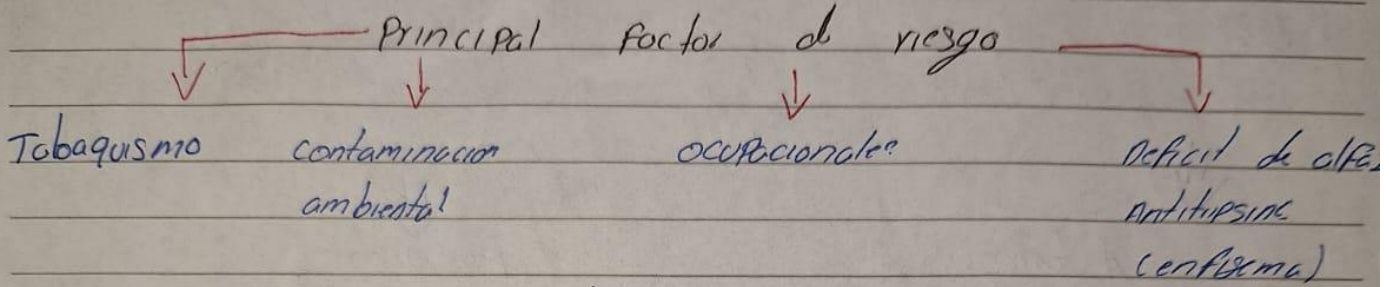 Principal factor d riesgo
Tabaquismo contaminacion ocupacionales Deficit de alfa
ambiental Antitripsina
(enfisema)